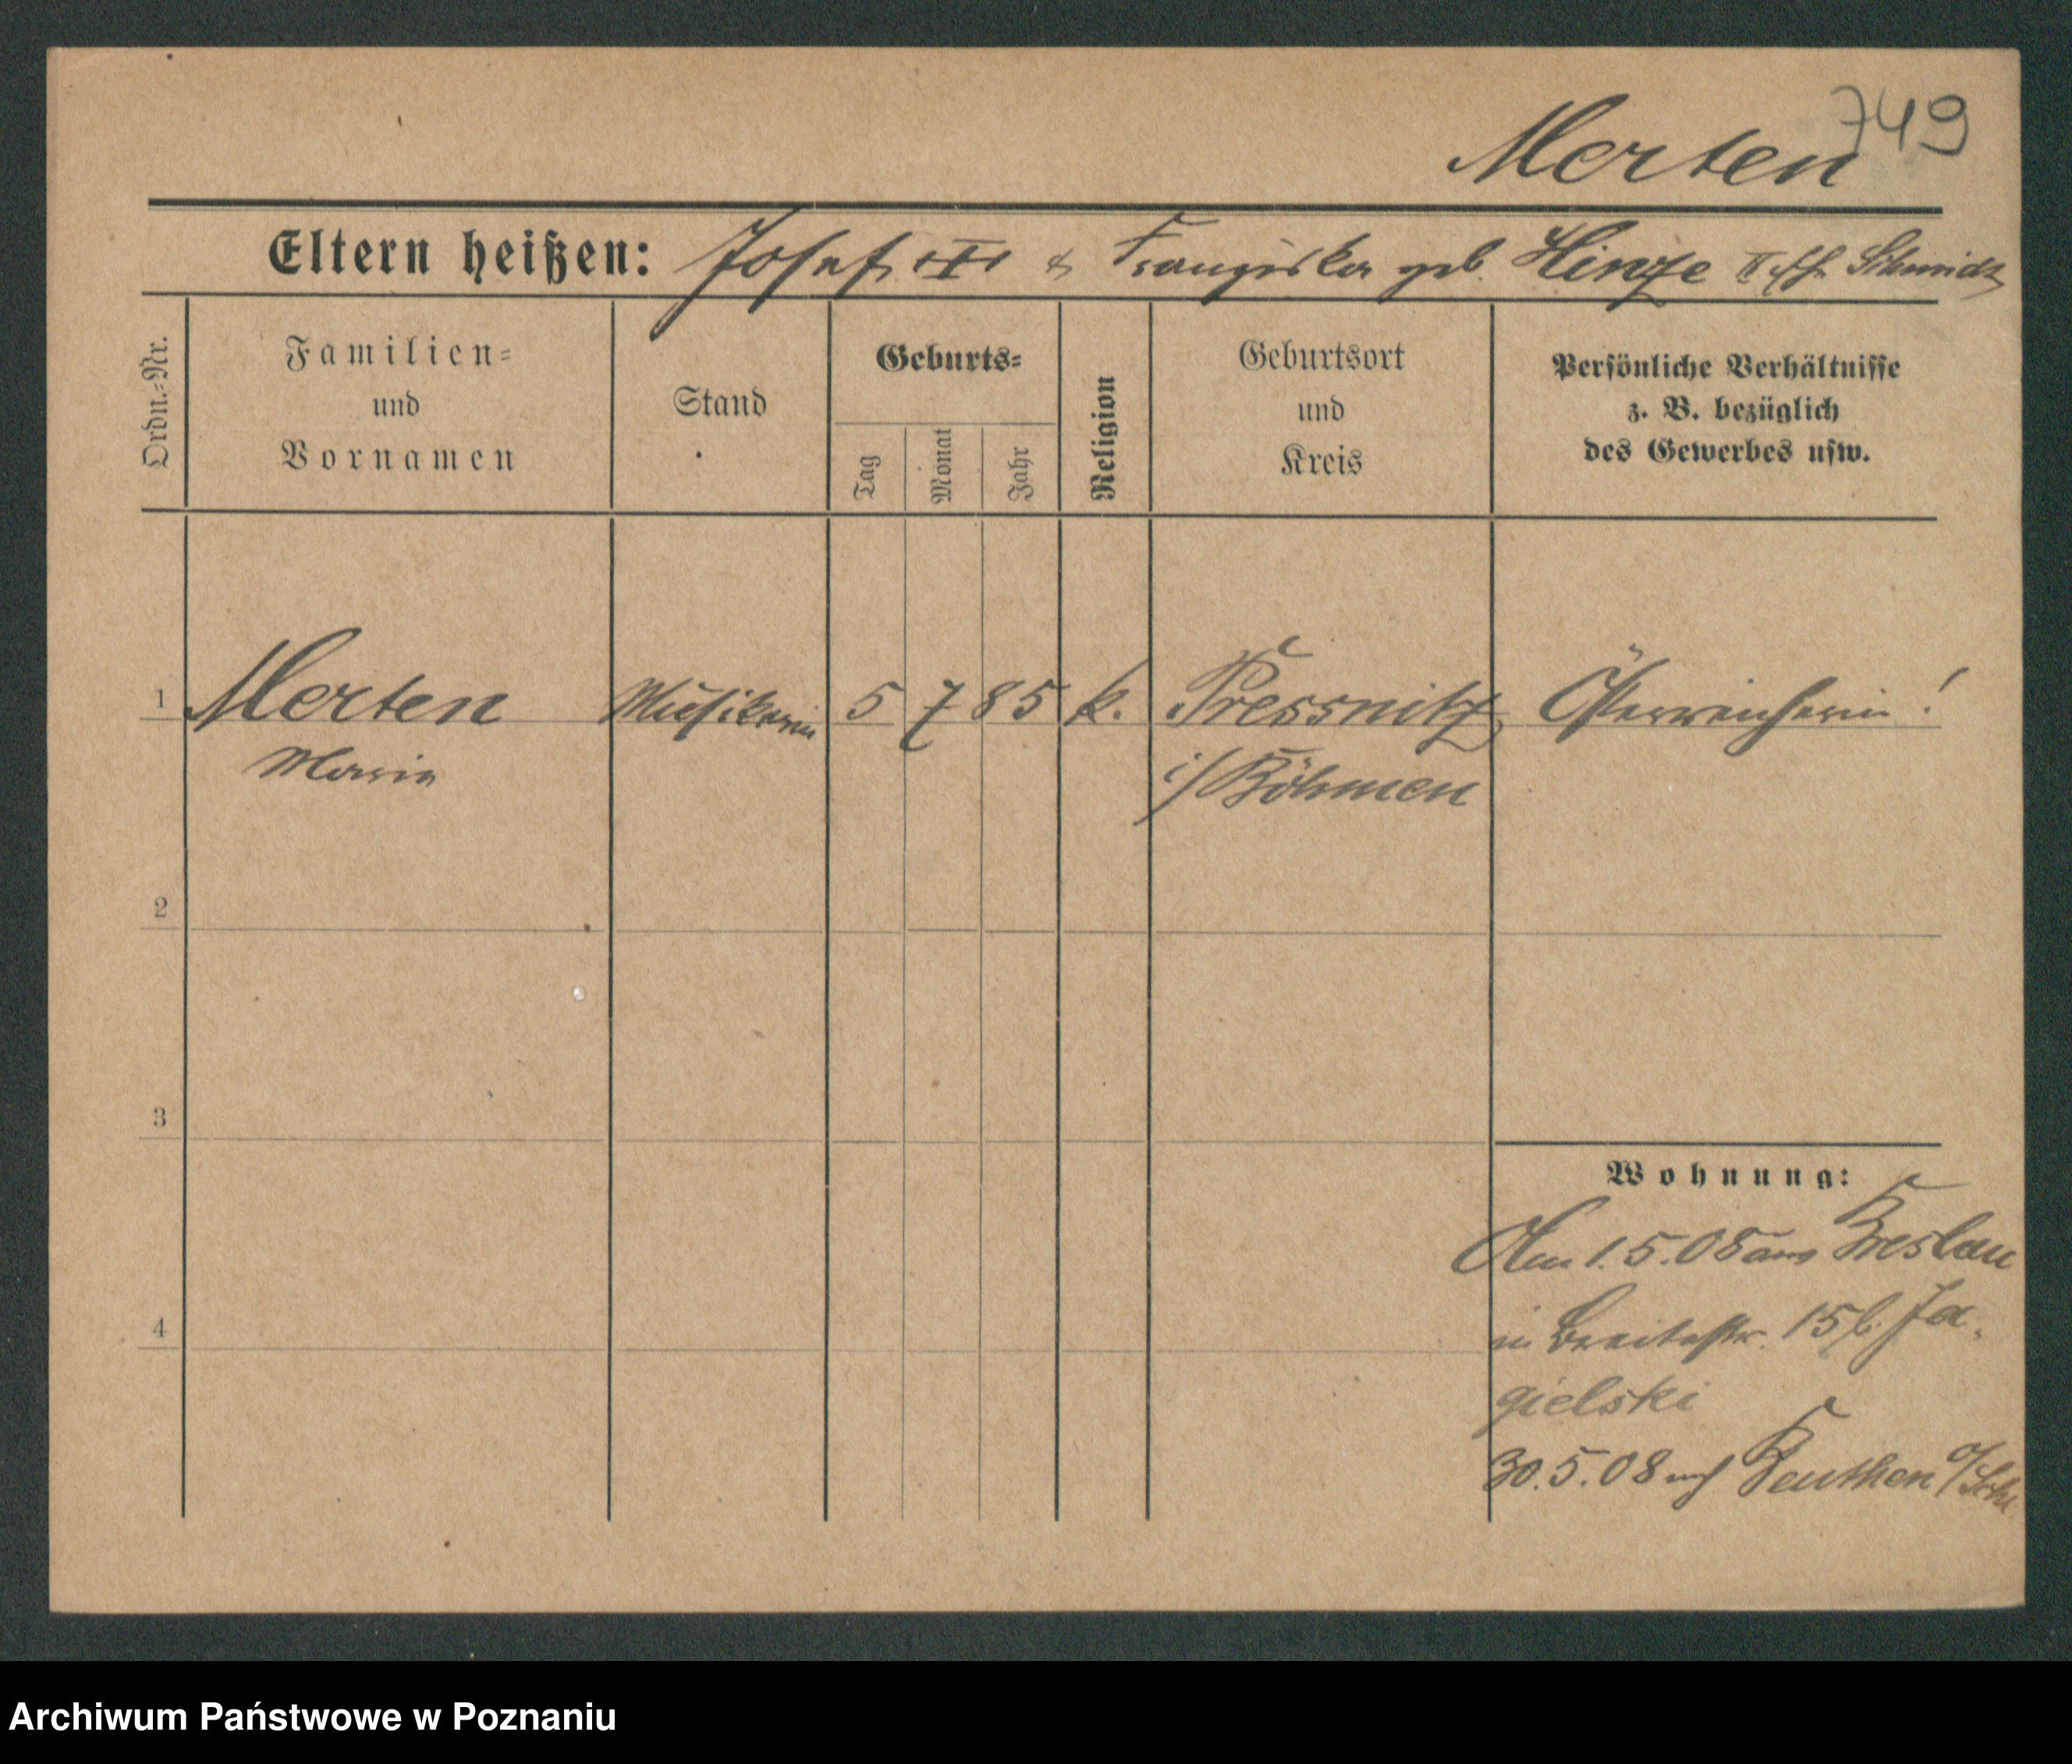 749
Merten
Eltern heißen: Josef & Franziska geb. Hinze II Schmidt
Ordn.-Nr.
Familien-
und
Vornamen
Stand
Geburts-
Tag
Monat
Jahr
Religion
Geburtsort
und
Kreis
Persönliche Verhältnisse
z. B. bezüglich
des Gewerbes usw.
1 Merten Musikerin 5 7 85 k. Pressnitz Österreicherin!
Maria i/Böhmen
2
3
4
Wohnung:
Am 1.5.08 aus Breslau
in Breitestr. 15 b. Ja-
gielski
30.5.08 nach Beuthen O/Schl
Archiwum Państwowe w Poznaniu